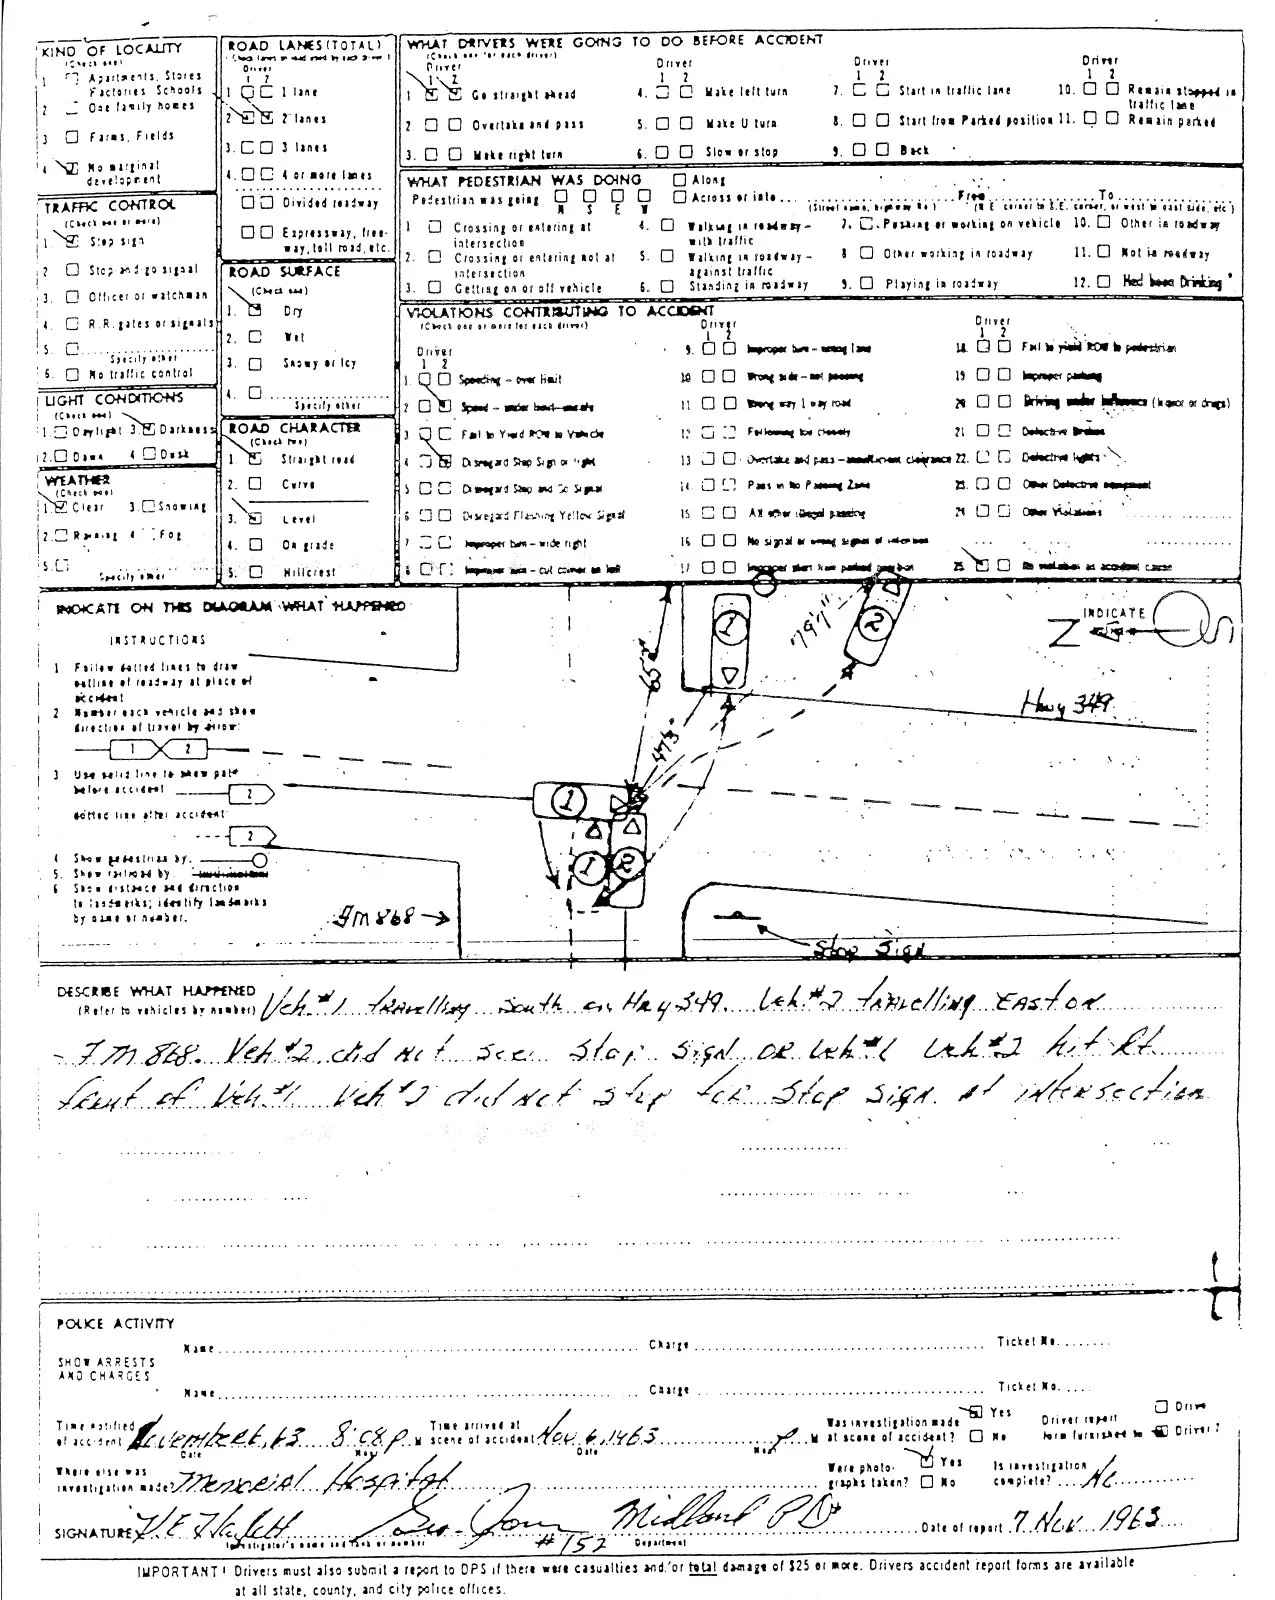 KIND OF LOCALITY
(Check one)
1 Apartments, Stores
Factories Schools
2 One family homes
3 Farms, Fields
4 No marginal
development
TRAFFIC CONTROL
(Check one or more)
1. Stop sign
2 Stop and go signal
3. Officer or watchman
4. R.R. gates or signals
5.
Specify other
6. No traffic control
LIGHT CONDITIONS
(Check one)
1. Daylight 3. Darkness
2. Dawn 4 Dusk
WEATHER
(Check one)
1. Clear 3. Snowing
2. Raining 4 Fog
5.
Specify other
ROAD LANES (TOTAL)
Driver
1 2
1 1 lane
2 2 lanes
3. 3 lanes
4. 4 or more lanes
Divided roadway
Expressway, free-
way, toll road, etc.
ROAD SURFACE
(Check one)
1. Dry
2. Wet
3. Snowy or Icy
4.
Specify other
ROAD CHARACTER
(Check two)
1. Straight road
2. Curve
3. Level
4. On grade
5. Hillcrest
WHAT DRIVERS WERE GOING TO DO BEFORE ACCIDENT
(Check one for each driver)
Driver Driver Driver Driver
1 2 1 2 1 2 1 2
1 Go straight ahead 4. Make left turn 7. Start in traffic lane 10. Remain stopped in
traffic lane
2 Overtake and pass 5. Make U turn 8. Start from Parked position 11. Remain parked
3. Make right turn 6. Slow or stop 9. Back
WHAT PEDESTRIAN WAS DOING Along
Pedestrian was going Across or into From To
N S E W (Street name, highway No.) (N.E. corner to S.E. corner, or west to east side, etc.)
1 Crossing or entering at
intersection
4. Walking in roadway -
with traffic
7. Pushing or working on vehicle 10. Other in roadway
2. Crossing or entering not at
intersection
5. Walking in roadway -
against traffic
8 Other working in roadway 11. Not in roadway
3. Getting on or off vehicle 6. Standing in roadway 9. Playing in roadway 12. Had been Drinking
VIOLATIONS CONTRIBUTING TO ACCIDENT
(Check one or more for each driver)
Driver Driver Driver
1 2 1 2 1 2
1. Speeding - over limit
2 Speed - under limit - unsafe
3 Fail to Yield ROW to Vehicle
4 Disregard Stop Sign or light
5 Disregard Stop and Go Signal
6 Disregard Flashing Yellow Signal
7 Improper turn - wide right
8 Improper turn - cut corner on left
9. Improper turn - wrong lane
10 Wrong side - not passing
11 Wrong way 1 way road
12 Following too closely
13 Overtake and pass - insufficient clearance
14 Pass in No Passing Zone
15 All other illegal passing
16 No signal or wrong signal of intention
17 Improper start from parked position
18. Fail to yield ROW to pedestrian
19 Improper parking
20 Driving under influence (liquor or drugs)
21 Defective Brakes
22. Defective lights
23. Other Defective equipment
24 Other Violations
25 No violation as accident cause
INDICATE ON THIS DIAGRAM WHAT HAPPENED
INSTRUCTIONS
1 Follow dotted lines to draw
outline of roadway at place of
accident
2 Number each vehicle and show
direction of travel by arrow:
1 2
3 Use solid line to show path
before accident 2
dotted line after accident
2
4 Show pedestrian by:
5. Show railroad by
6 Show distance and direction
to landmarks; identify landmarks
by name or number.
1
2
79'7"
65'
47'3"
1
1
2
INDICATE
N
Hwy 349
FM 868
Stop Sign
DESCRIBE WHAT HAPPENED
(Refer to vehicles by number)
Veh. #1 travelling South on Hwy 349. Veh. #2 travelling East on
FM 868. Veh #2 did not see Stop Sign or Veh #1 Veh #2 hit Rt.
front of Veh #1 Veh #2 did not stop for Stop Sign at intersection
POLICE ACTIVITY
SHOW ARRESTS
AND CHARGES
Name Charge Ticket No.
Name Charge Ticket No.
Time notified
of accident November 6, 63 8:08 p M
Date Hour
Time arrived at
scene of accident Nov 6, 1963 p M
Date Hour
Was investigation made
at scene of accident? Yes No
Driver report
form furnished to Driver 2
Where else was
investigation made Memorial Hospital
Were photo-
graphs taken? Yes No
Is investigation
complete? No
SIGNATURE
Investigator's name and rank or number #152 Midland PD Department
Date of report 7 Nov 1963
IMPORTANT! Drivers must also submit a report to DPS if there were casualties and/or total damage of $25 or more. Drivers accident report forms are available
at all state, county, and city police offices.